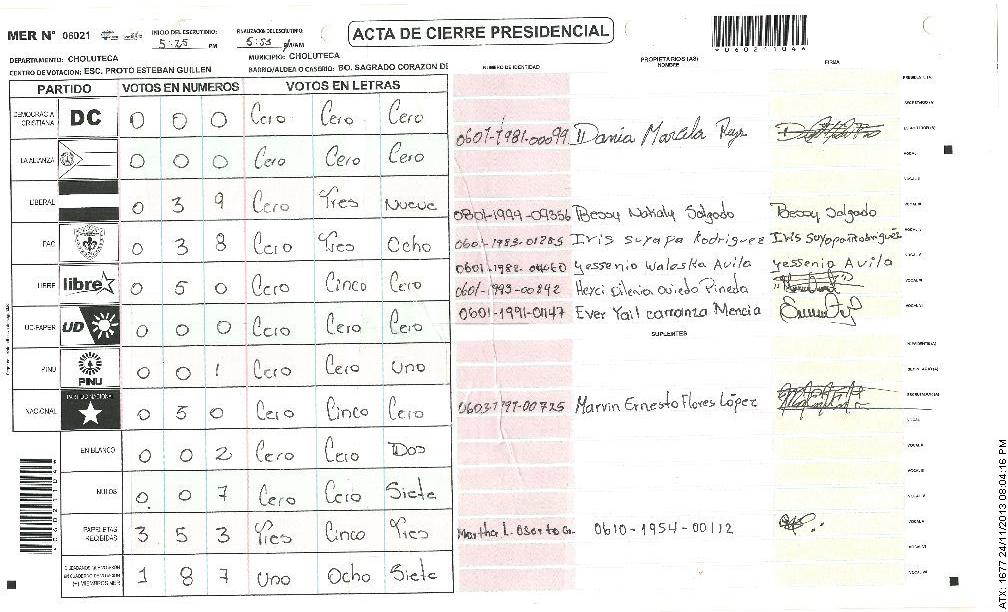 MER N° 06021 INICIO DEL ESCRUTINIO: 5:25 PM FINALIZACION ESCRUTINIO: 5:55 PM/AM ACTA DE CIERRE PRESIDENCIAL
*060211046*
DEPARTAMENTO: CHOLUTECA MUNICIPIO: CHOLUTECA
CENTRO DE VOTACION: ESC. PROTO ESTEBAN GUILLEN BARRIO/ALDEA O CASERIO: BO. SAGRADO CORAZON DE
NUMERO DE IDENTIDAD PROPIETARIOS (AS) NOMBRE FIRMA
PARTIDO VOTOS EN NUMEROS VOTOS EN LETRAS
DEMOCRACIA CRISTIANA DC 0 0 0 Cero Cero Cero
LA ALIANZA 0 0 0 Cero Cero Cero
LIBERAL 0 3 9 Cero Tres Nueve
PAC 0 3 8 Cero Tres Ocho
LIBRE libre 0 5 0 Cero Cinco Cero
UD-FAPER UD 0 0 0 Cero Cero Cero
PINU PINU 0 0 1 Cero Cero Uno
NACIONAL PARTIDO NACIONAL 0 5 0 Cero Cinco Cero
EN BLANCO 0 0 2 Cero Cero Dos
NULOS 0 0 7 Cero Cero Siete
PAPELETAS RECIBIDAS 3 5 3 Tres Cinco Tres
CIUDADANOS QUE VOTARON EN CUADERNO DE VOTACION (+) MIEMBROS MER 1 8 7 Uno Ocho Siete
0601-1981-00099 Dania Marcela Ruiz
0801-1999-09356 Bessy Nohaly Salgado Bessy Salgado
0601-1983-01285 Iris Suyapa Rodriguez Iris Suyapa Rodriguez
0601-1982- Yessenia Waleska Avila Yessenia Avila
0601-1993-00842 Heyci Dilenia Oviedo Pineda
0601-1991-01147 Ever Yail Carranza Mencia
SUPLENTES
Marvin Ernesto Flores López
Martha L. Osorto G. 0610-1954-00112
ATX: 1677 24/11/2013 08:04:16 PM